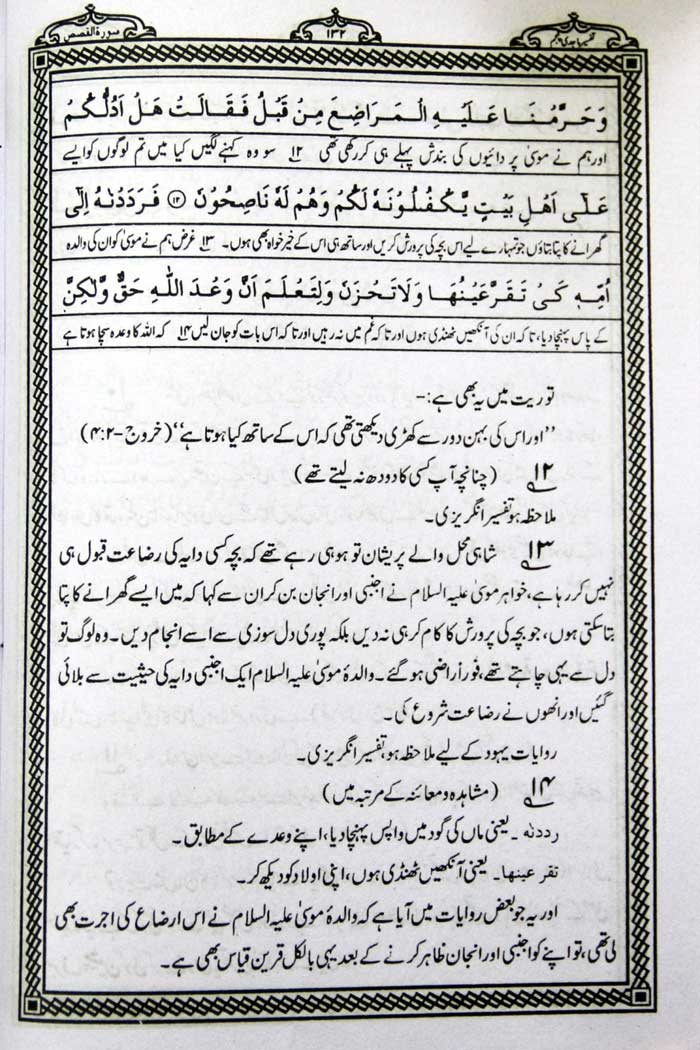 سورة القصص
۱۳۲
تفسیر ماجدی پنجم
وَحَرَّمْنَا عَلَيْهِ الْمَرَاضِعَ مِنْ قَبْلُ فَقَالَتْ هَلْ اَدُلُّكُمْ
اور ہم نے موسیٰ پر دائیوں کی بندش پہلے ہی کر رکھی تھی ۱۲ سو وہ کہنے لگیں کیا میں تم لوگوں کو ایسے
عَلٰٓى اَهْلِ بَيْتٍ يَّكْفُلُوْنَهٗ لَكُمْ وَهُمْ لَهٗ نَاصِحُوْنَ ۝۱۲ فَرَدَدْنٰهُ اِلٰٓى
گھرانے کا پتا بتاؤں جو تمہارے لیے اس بچہ کی پرورش کریں اور ساتھ ہی اس کے خیر خواہ بھی ہوں۔ ۱۳ غرض ہم نے موسیٰ کو ان کی والدہ
اُمِّهٖ كَىْ تَقَرَّعَيْنُهَا وَلَا تَحْزَنَ وَلِتَعْلَمَ اَنَّ وَعْدَ اللّٰهِ حَقٌّ وَّلٰكِنَّ
کے پاس پہنچا دیا، تاکہ ان کی آنکھیں ٹھنڈی ہوں اور تاکہ غم میں نہ رہیں اور تاکہ اس بات کو جان لیں ۱۴ کہ اللہ کا وعدہ سچا ہوتا ہے
توریت میں یہ بھی ہے:۔
''اور اس کی بہن دور سے کھڑی دیکھتی تھی کہ اس کے ساتھ کیا ہوتا ہے'' (خروج-۴:۲)
۱۲ (چنانچہ آپ کسی کا دودھ نہ لیتے تھے)
ملاحظہ ہو تفسیر انگریزی۔
۱۳ شاہی محل والے پریشان تو ہو ہی رہے تھے کہ بچہ کسی دایہ کی رضاعت قبول ہی
نہیں کر رہا ہے، خواہر موسیٰ علیہ السلام نے اجنبی اور انجان بن کر ان سے کہا کہ میں ایسے گھرانے کا پتا
بتا سکتی ہوں، جو بچہ کی پرورش کا کام کر ہی نہ دیں بلکہ پوری دل سوزی سے اسے انجام دیں۔ وہ لوگ تو
دل سے یہی چاہتے تھے، فوراً راضی ہو گئے۔ والدۂ موسیٰ علیہ السلام ایک اجنبی دایہ کی حیثیت سے بلائی
گئیں اور انھوں نے رضاعت شروع کی۔
روایات یہود کے لیے ملاحظہ ہو، تفسیر انگریزی۔
۱۴ (مشاہدہ و معائنہ کے مرتبہ میں)
رددنٰه۔ یعنی ماں کی گود میں واپس پہنچا دیا، اپنے وعدے کے مطابق۔
تقرعینها۔ یعنی آنکھیں ٹھنڈی ہوں، اپنی اولاد کو دیکھ کر۔
اور یہ جو بعض روایات میں آیا ہے کہ والدۂ موسیٰ علیہ السلام نے اس ارضاع کی اجرت بھی
لی تھی، تو اپنے کو اجنبی اور انجان ظاہر کرنے کے بعد یہی بالکل قرین قیاس بھی ہے۔